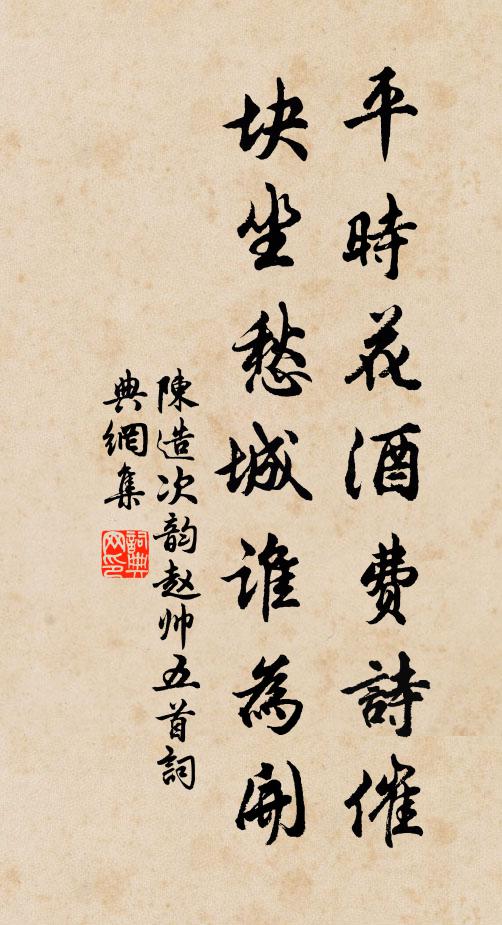 平時花酒費詩催
块坐愁城誰為開
陳造次韵赵帅五首詞
典網集
詞典
网印